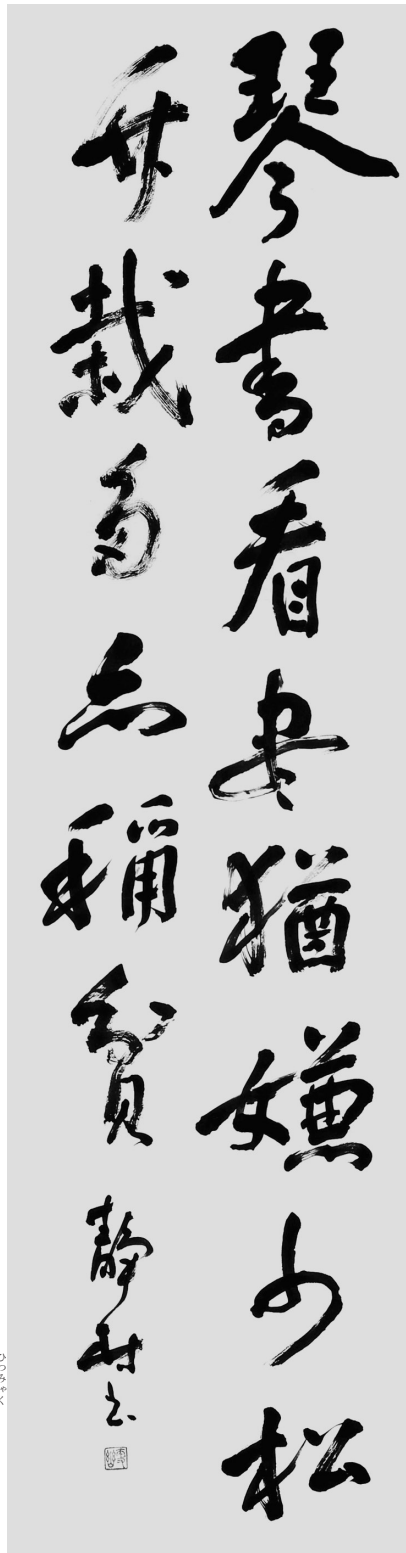 琴書看尽猶嫌少松
竹栽多亦稱貧
靜村書
ひつみゃく